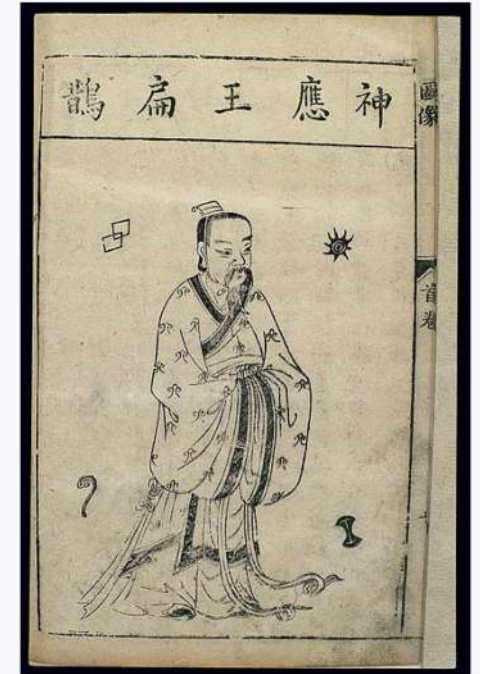 神應王扁鵲
畫像
首卷